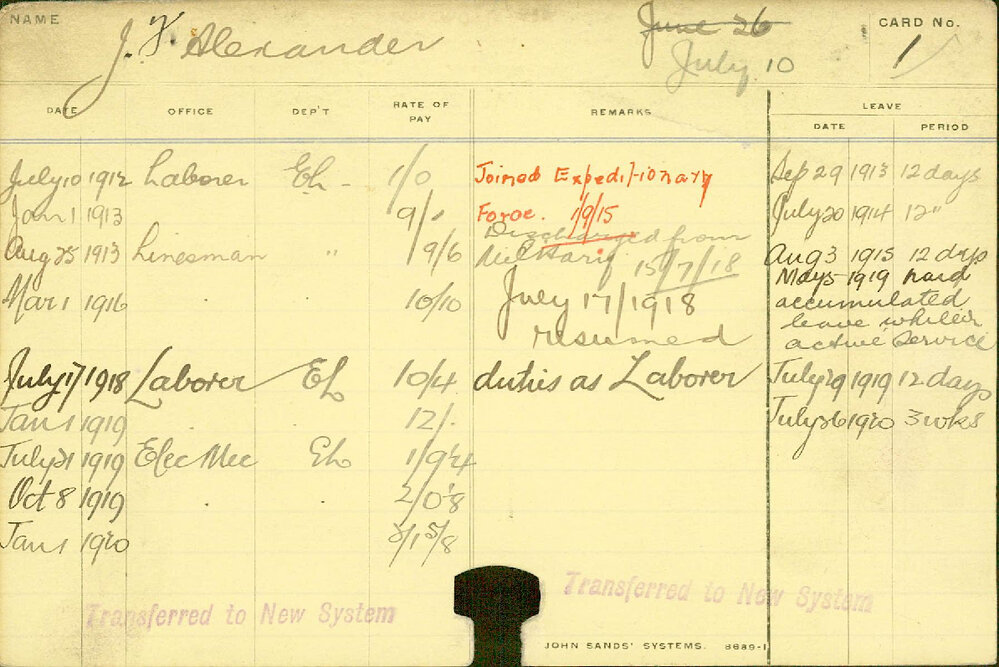 NAME J. F. Alexander June 26 CARD No. 1
July 10
LEAVE
DATE OFFICE DEP'T RATE OF PAY REMARKS DATE PERIOD
July 10 1912 Laborer El - 1/0 Joined Expeditionary Sep 29 1913 12 days
Jan 1 1913 9/- Force. 1/9/15 July 20 1914 12 "
Discharged from
Aug 25 1913 Linesman " 9/6 Military 15/7/18 Aug 3 1915 12 days
May 5 1919 paid
Mar 1 1916 10/10 July 17/1918 accumulated
resumed leave whilst
active service
July 17/1918 Laborer El 10/4 duties as Laborer July 29 1919 12 days
Jan 1 1919 12/- July 26 1920 3 wks
July 21 1919 Elec Mec El
Oct 8 1919
Jan 1 1920
Transferred to New System Transferred to New System
JOHN SANDS' SYSTEMS. 8689-1